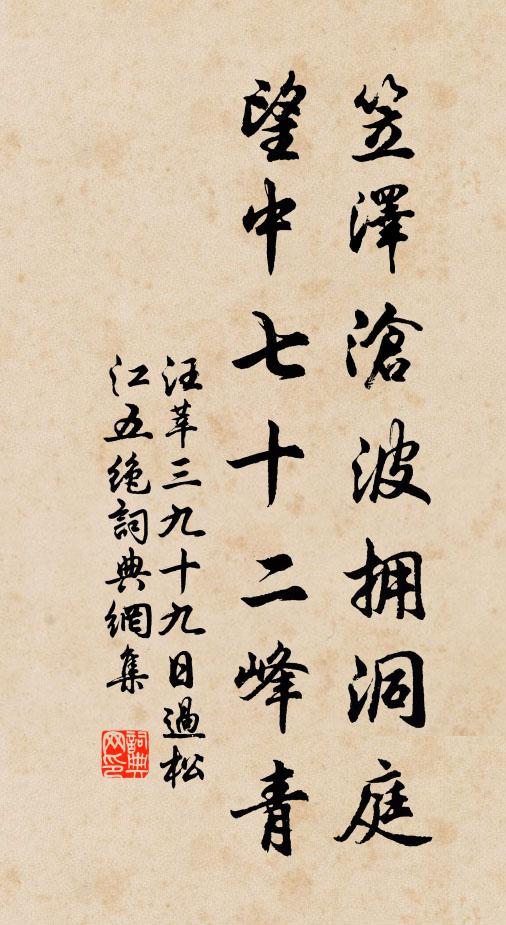 笠澤滄波拥洞庭
望中七十二峰青
汪莘三九十九日過松
江五绝詞典網集
詞典网印